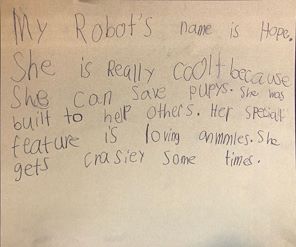 My Robot's name is Hope.
She is Really coolt because
She can save pupys. She was
built to help others. Her special
feature is loving anmmles. She
gets crasiey some times.